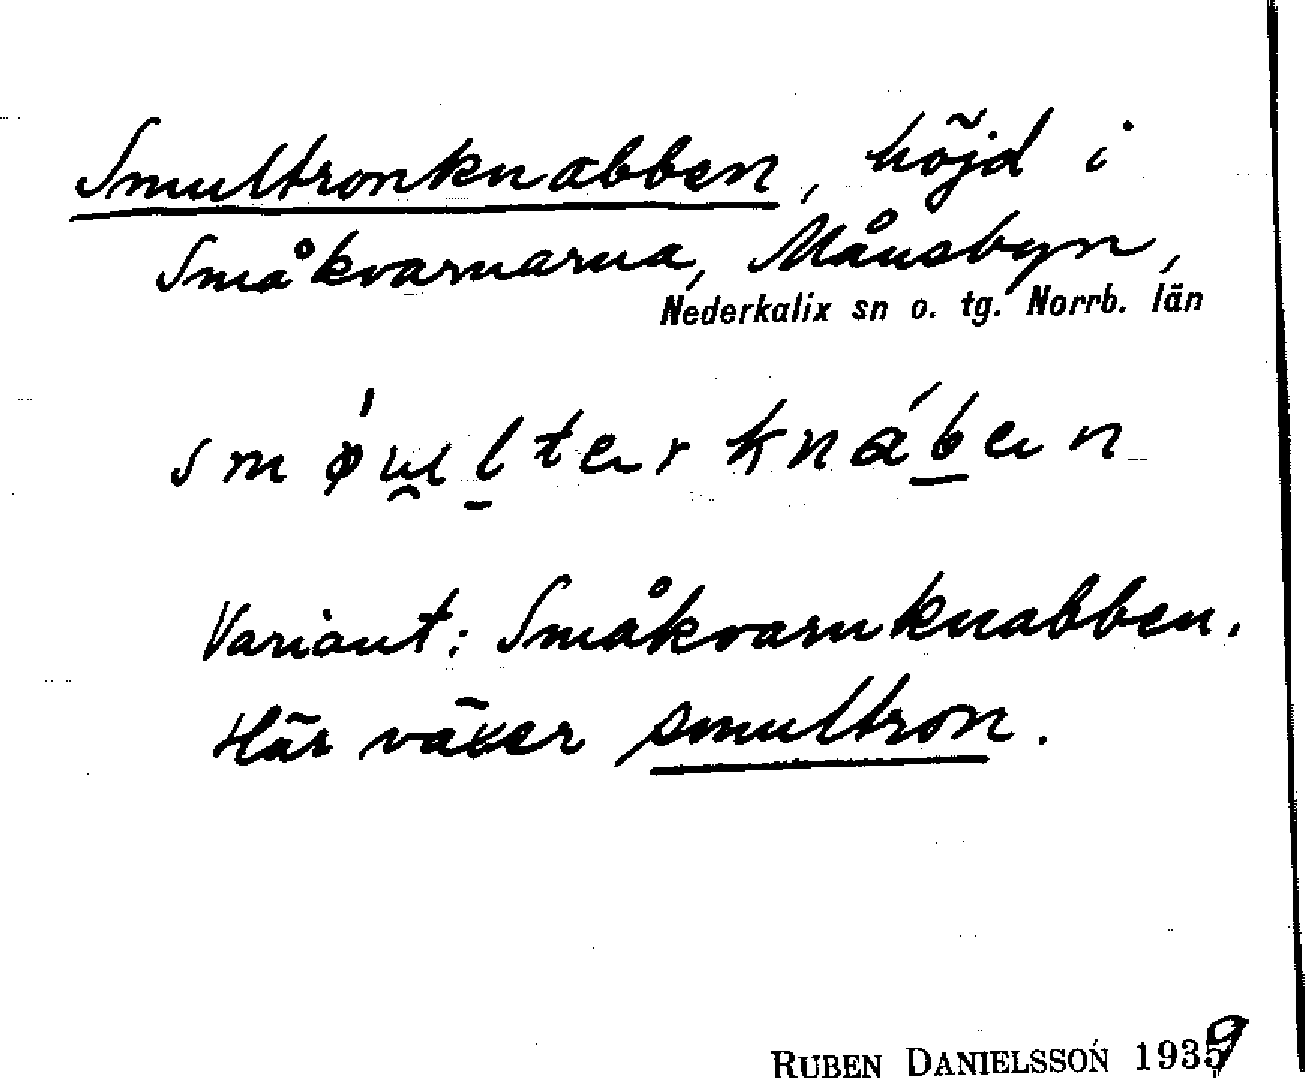 Smultronknabben, höjd i
Småkvarnarna, Månsbyn,
Nederkalix sn o. tg. Norrb. län
Variant: Småkvarnknabben.
Här växer smultron.
RUBEN DANIELSSON 1939